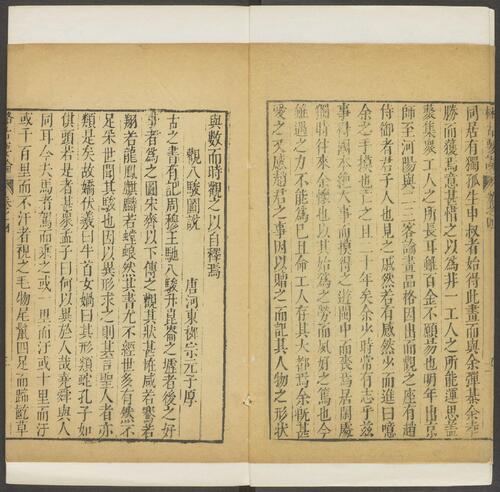 同居有獨孤生申叔者始得此畫而與余彈棊余幸
勝而獲焉意甚惜之以為非一工人之所能運思蓋
藂集衆工人之所長耳雖百金不願易也明年出京
師至河陽與二三客論畫品格因出而觀之座有趙
侍御者君子人也見之戚然若有感然少而進曰噫
余之手摸也亡之且二十年矣余少時常有志乎茲
事得國本絶人事而摸得之遊閩中而喪焉居閑處
獨時往來余懷也以其始為之勞而夙好之篤也今
雖遇之力不能為已且命工人存其大都焉余既甚
愛之又感趙君之事因以贈之而記其人物之形狀
與數而時觀之以自釋焉
觀八駿圖說
唐河東柳宗元子厚
古之書有記周穆王馳八駿升崑崙之墟者後之好
事者為之圖宋齊以下傳之觀其狀甚怪咸若騫若
翔若龍鳳麒麟若螳蜋然其書尤不經世多有然不
足采世聞其駿也因以異形求之則其言聖人者亦
類是矣故嬌伏羲曰牛首女媧曰其形類蛇孔子如
倛頭若是者甚衆孟子曰何以異於人哉堯舜與人
同耳今夫馬者駕而乘之或一里而汗或十里而汗
或千百里而不汗者視之毛物尾鬣四足而蹄齕草